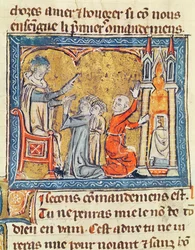 choses amer & honꝛer si cō nous
enseigne li pꝛimiers 9mandemens.
Li secons cōmandemens est.
Tu ne penras mie le nō de
dieu en vain. Cest adire tu ne iu
reras mie pour noiant